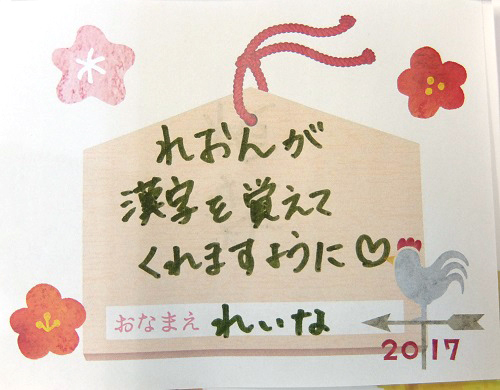 れおんが
漢字を覚えて
くれますように♡
おなまえ れいな
2017